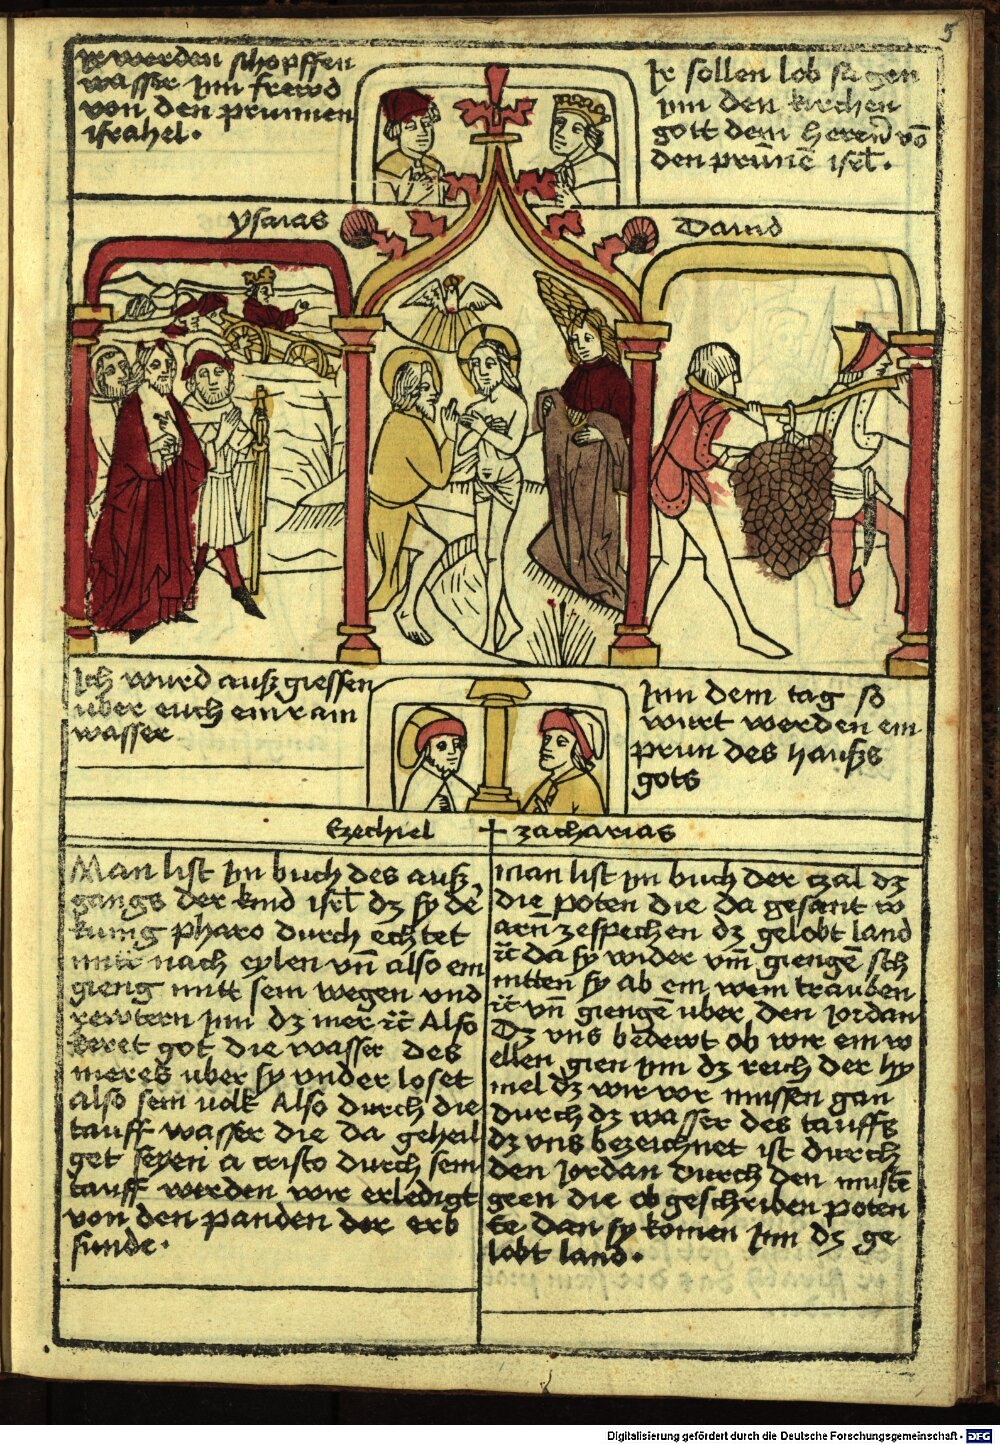 5
Ir werden schopffen
wasser Inn frewd
von den prunnen
israhel.
Ir sollen lob sagen
Inn den kirchen
gott dem herrn vō
den prūnē isrl̄.
ysaias
Dauid
Ich wurd außgiessen
uber euch ein rain
wasser
Inn dem tag so
wurt werden ein
prun des haußs
gots
Ezechiel + zacharias
Man list Im buch des auß
gangs der kind isrl̄ dz sy dē
kunig pharo durch echtet
mitt nach eylen vn̄ also ein
gieng mitt sein wegen vnd
rewtern Inn dz mer ꝛc̄ Also
keret got die wasser des
meres uber sy vnder loset
also sein volk Also durch die
tauff wasser die da geheil
get seyen a cristo durch sein
tauff werden wir erledigt
von den panden der erb
sunde.
man list Im buch der czal dz
die poten die da gesant w
arn̄ zespechen dz gelobt land
ꝛc̄ da sy wider vm̄ giengē sch
nitten sy ab ein wein trauben
ꝛc̄ vn̄ giengē uber den Jordan
Dz vns bedewt ob wir ein w
ellen gien Inn dz reich der hy
mel dz wir vor mussen gan
durch dz wasser des tauffs
dz vns bezeichnet ist durch
den Jordan durch den mustē
geen die ob geschriben poten
Ee dan sy komen Inn dz ge
lobt land.
Digitalisierung gefördert durch die Deutsche Forschungsgemeinschaft - DFG